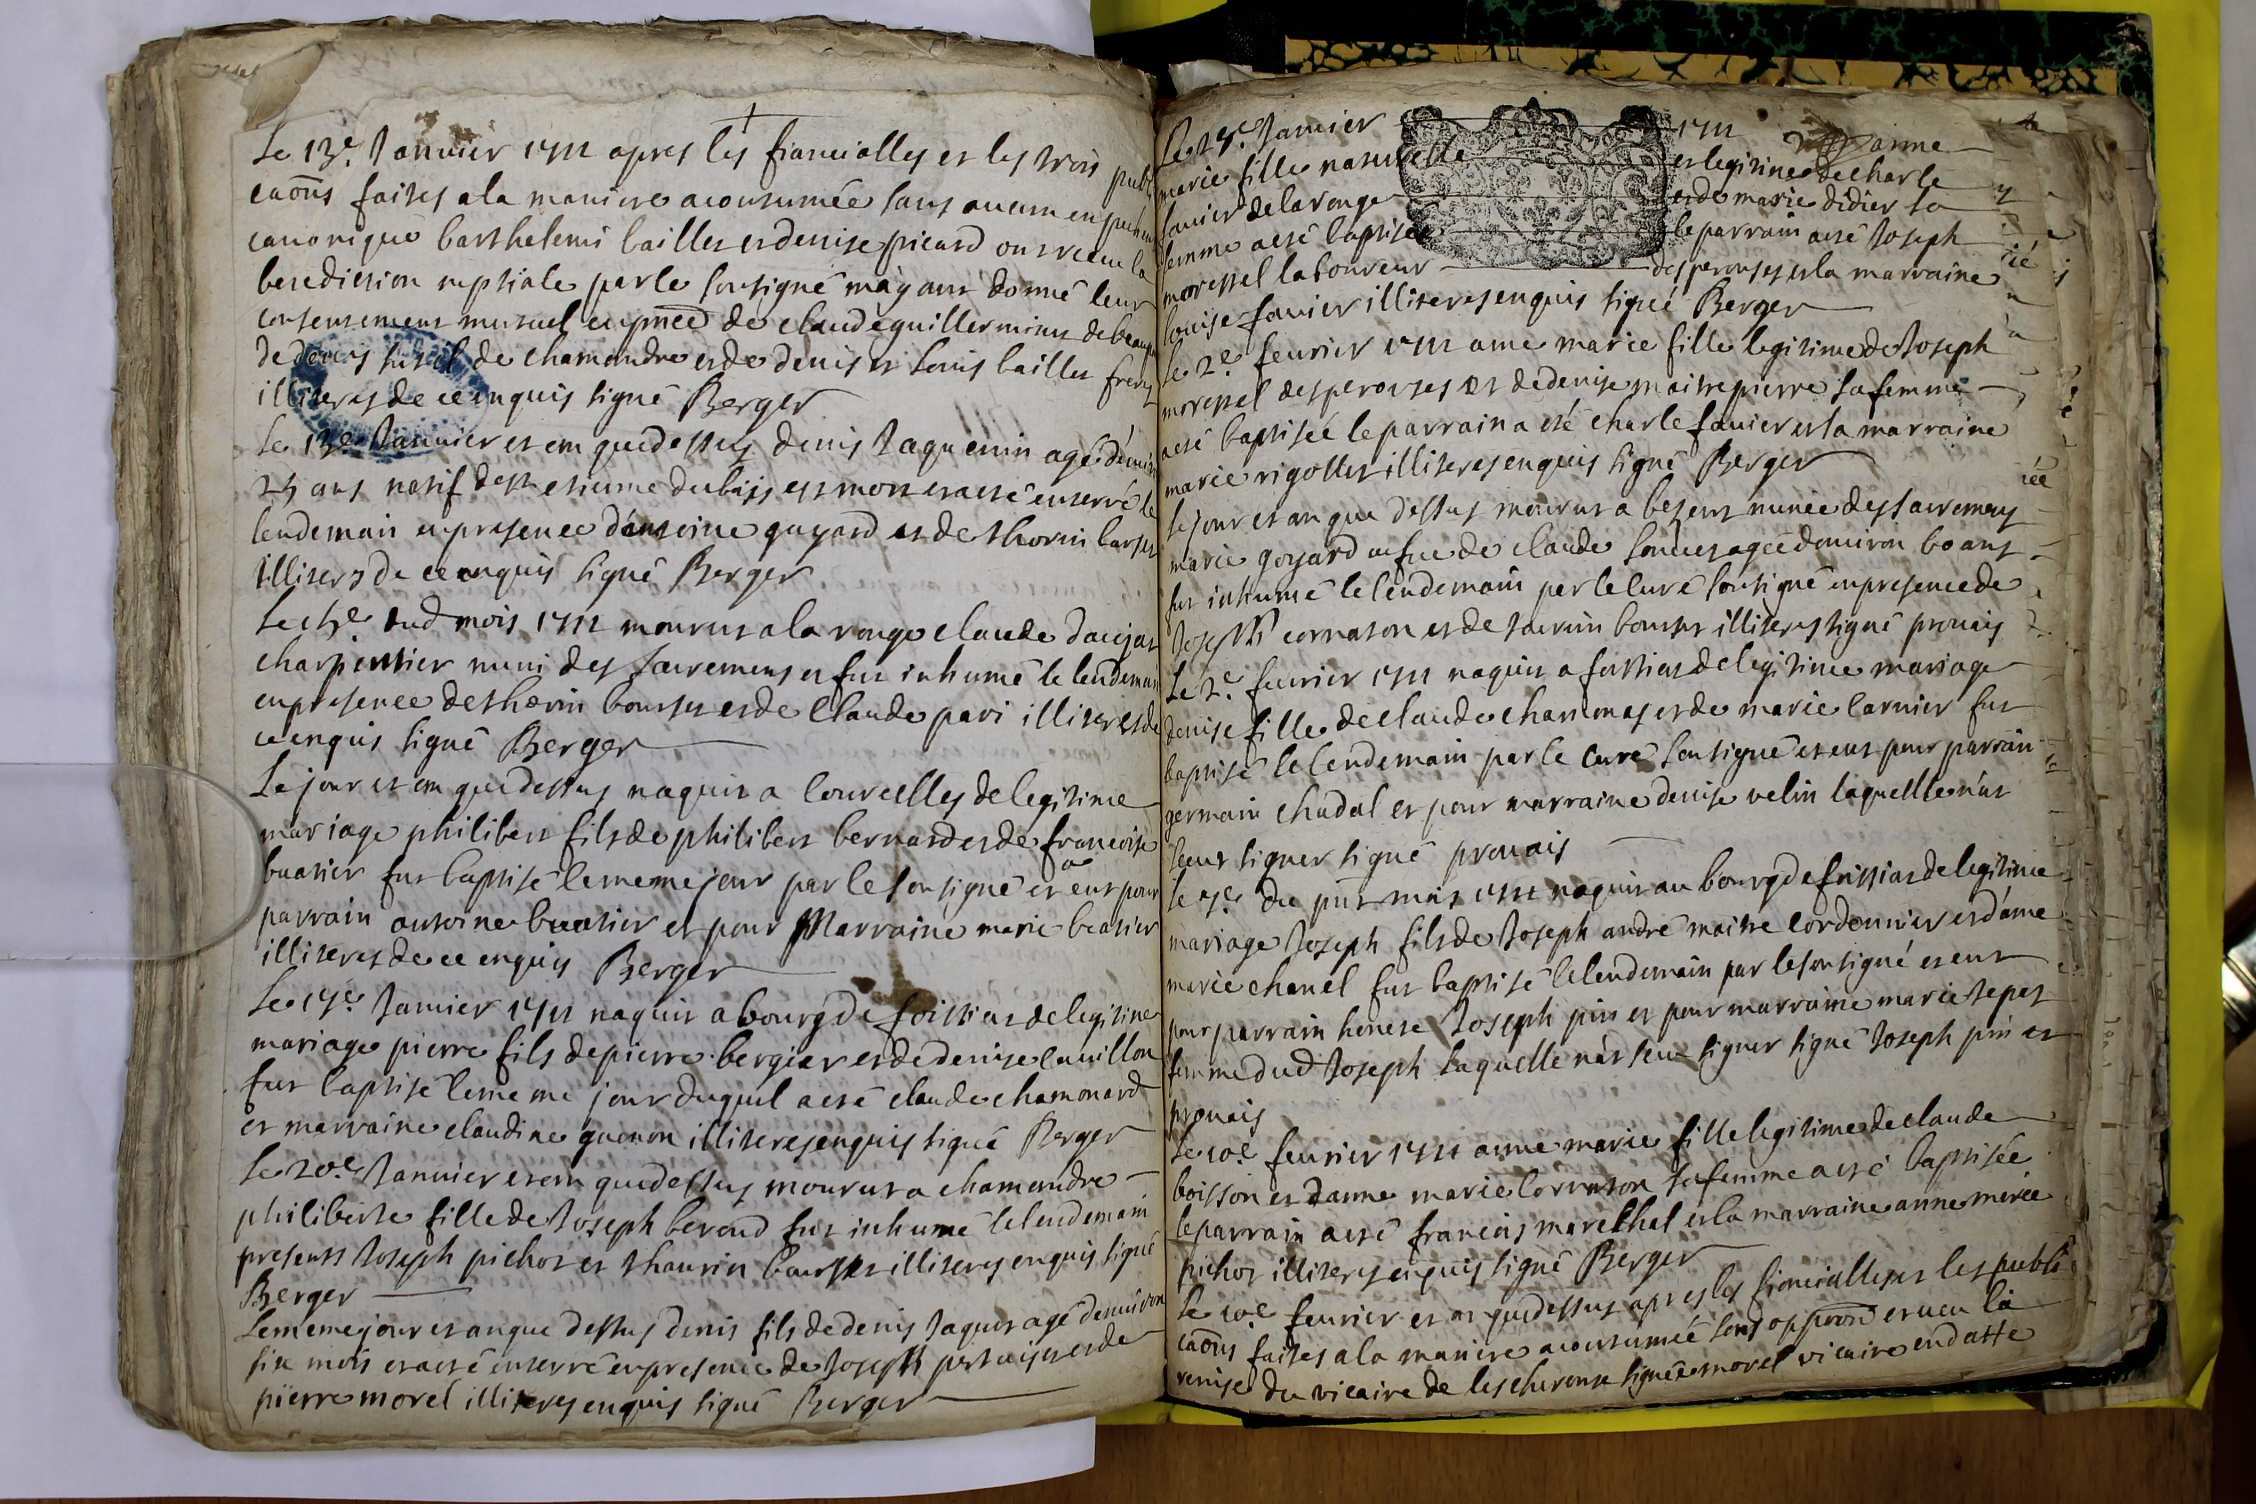 Le 13e. Janvier 1711 apres les fiancialles et les trois publi
caõns faites a la maniere acoutumée sans aucun enpechem
canonique barthelemi baillet et denise picard ont receu la
benediction nuptiale par le soussigné mayant donné leur
consentement mutuel en pnce de claude guillermin
de chamandre et de denis et louis baillet freres
illiteres de ce enquis signé Berger
Le 13e Janvier et an que dessus denis Jaquemin agé denvir
25 ans natif de st etienne du bois est mort et a eté enterré le
lendemain en presence d'antoine guyard et de thorin
illiteres de ce enquis signé Berger
Le 15e. dud mois 1711 mourut a la rouge claude
charpentier muni des sacremens et fut inhumé le lendemain
en presence de thorin boutet et de Claude pari illiteres de
ce enquis signé Berger
Le jour et an que dessus naquit a courcelles de legitime
mariage philibert fils de philibert bernard et de francoise
buatier fut baptisé le meme jour par le soussigné et a eut pour
parrain antoine buatier et pour Marraine marie buatier
illiteres de ce enquis Berger
Le 17e. Janvier 1711 naquit a bourg de foissiat de legitime
mariage pierre fils de pierre bergier et de denise cavillon
fut baptisé le me me jour duquel a eté claude chamonard
et marraine claudine guenon illiteres enquis signé Berger
Le 20e. Janvier et an que dessus mourut a chamandre
philiberte fille de Joseph beraud fut inhumé le lendemain
presents Joseph pichot et thaurin boutet illiteres enquis signé
Berger
Le meme jour et an que dessus denis fils de denis Jaquet agé denviron
six mois et a eté enterré en presence de Joseph et de
pierre morel illiteres enquis signé Berger
Le Janvier 1711 anne
marie fille naturelle et legitime de charle
favier de la rouge et de marie didier sa
femme a eté baptisée le parrain a eté Joseph
morestel laboureur des perouses et la marraine
louise favier illiteres enquis signé Berger
Le 2e. fevrier 1711 anne marie fille legitime de Joseph
morestel des perouses et de denise maitrepierre sa femme
a eté baptisée le parrain a eté charle favier et la marraine
marie rigollet illiteres enquis signé Berger
Le jour et an que dessus mourut a munie des sacremens
marie goyard de claude agée denviron 60 ans
fut inhumé le lendemain par le curé soussigné en presence de
Joseph cornaton et de taurin boutet illiteres signé provais
Le 2e. fevrier 1711 naquit a foissiat de legitime mariage
denise fille de claude chamonas et de marie carnier fut
baptisé le lendemain par le curé soussigné et eut pour parrain
germain chadal et pour marraine denise velin laquelle n'at
sceut signer signé provais
Le du pnt mois 1711 naquit au bourg de foissiat de legitime
mariage Joseph fils de Joseph andré maitre cordonnier et d'anne
marie chanel fut baptisé le lendemain par le soussigné et eut
pour parrain honete Joseph pin et pour marraine marie
femme dud Joseph laquelle n'at seu signer signé Joseph pin et
provais
Le 10e. fevrier 1711 anne marie fille legitime de claude
boisson et danne marie cornaton sa femme a eté baptisée
le parrain a eté francois marechal et la marraine anne marie
pichot illiteres enquis signé Berger
Le 10e fevrier et an que dessus apres les fiancialles et les publi
caõns faites a la maniere acoutumée sans oppoõn et veu la
remise du vicaire de signée morel vicaire en datte